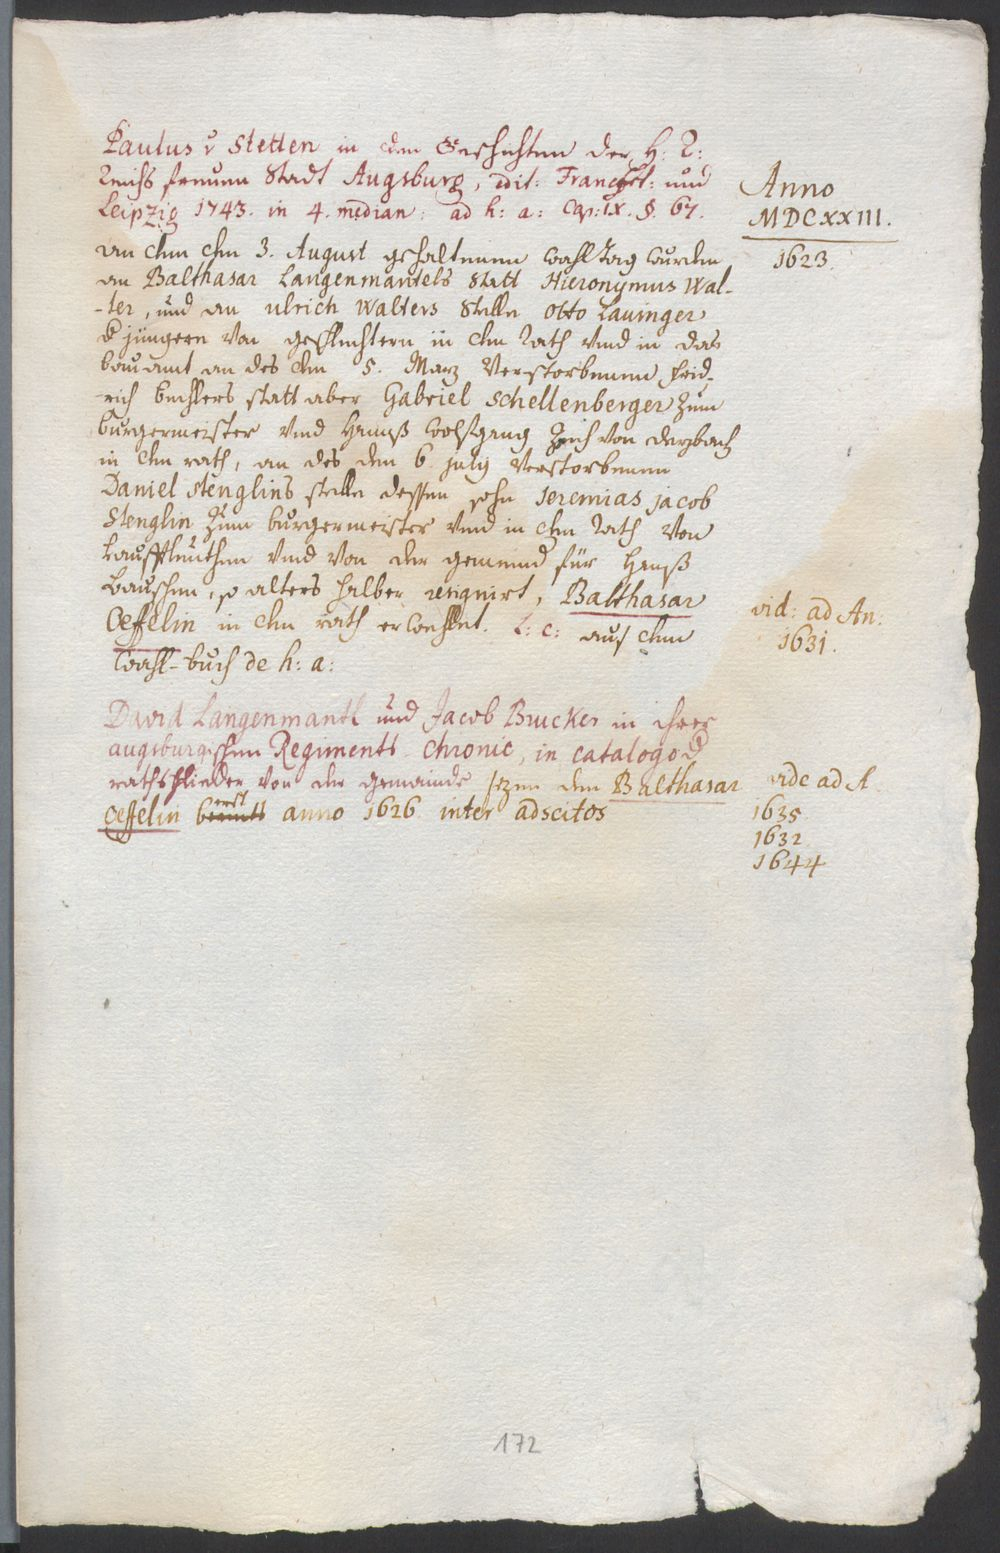 Paulus v Stetten in den Geschichten der H: R:
Reichs freuen Stadt Augsburg, edit: Francfrt: und
Leipzig 1743. in 4. median: ad h: a: Cap: IX. §. 67.
Anno
MDCXXIII.
1623.
an dem den 3. August gehaltenem Wahl Tag wurden
an Balthasar Langenmantels Statt Hieronymus Wal-
-ter, und an Ulrich Walters Stelle Otto Lauinger
d jüngere Von geschlechtern in den Rath vnd in das
bau amt an des den 5. Marz Verstorbenen Frid-
-rich Bechlers statt aber Gabriel Schellenberger zum
burgermeister vnd Hannß Wolfgang Zech von Deybach
in den rath, an des den 6 july Verstorbenen
Daniel Stenglins stelle dessen sohn Jeremias Jacob
Stenglin Zum burgermeister vnd in den Rath Von
Kauffleuthen vnd Von der gemeind für Hanß
Bauschen, so alters halber resignirt, Balthasar
Oeffelin in den rath erwehlet. L: c: aus dem
Wahl-buch de h: a:
vid: ad An:
1631.
David Langenmantl und Jacob Brucker in ihrer
augsburgischen Regiments Chronic, in catalogo d
rathsglieder von der gemainde sezen den Balthasar
Oeffelin erst anno 1626 inter adscitos
vide ad A
1635
1632
1644
172